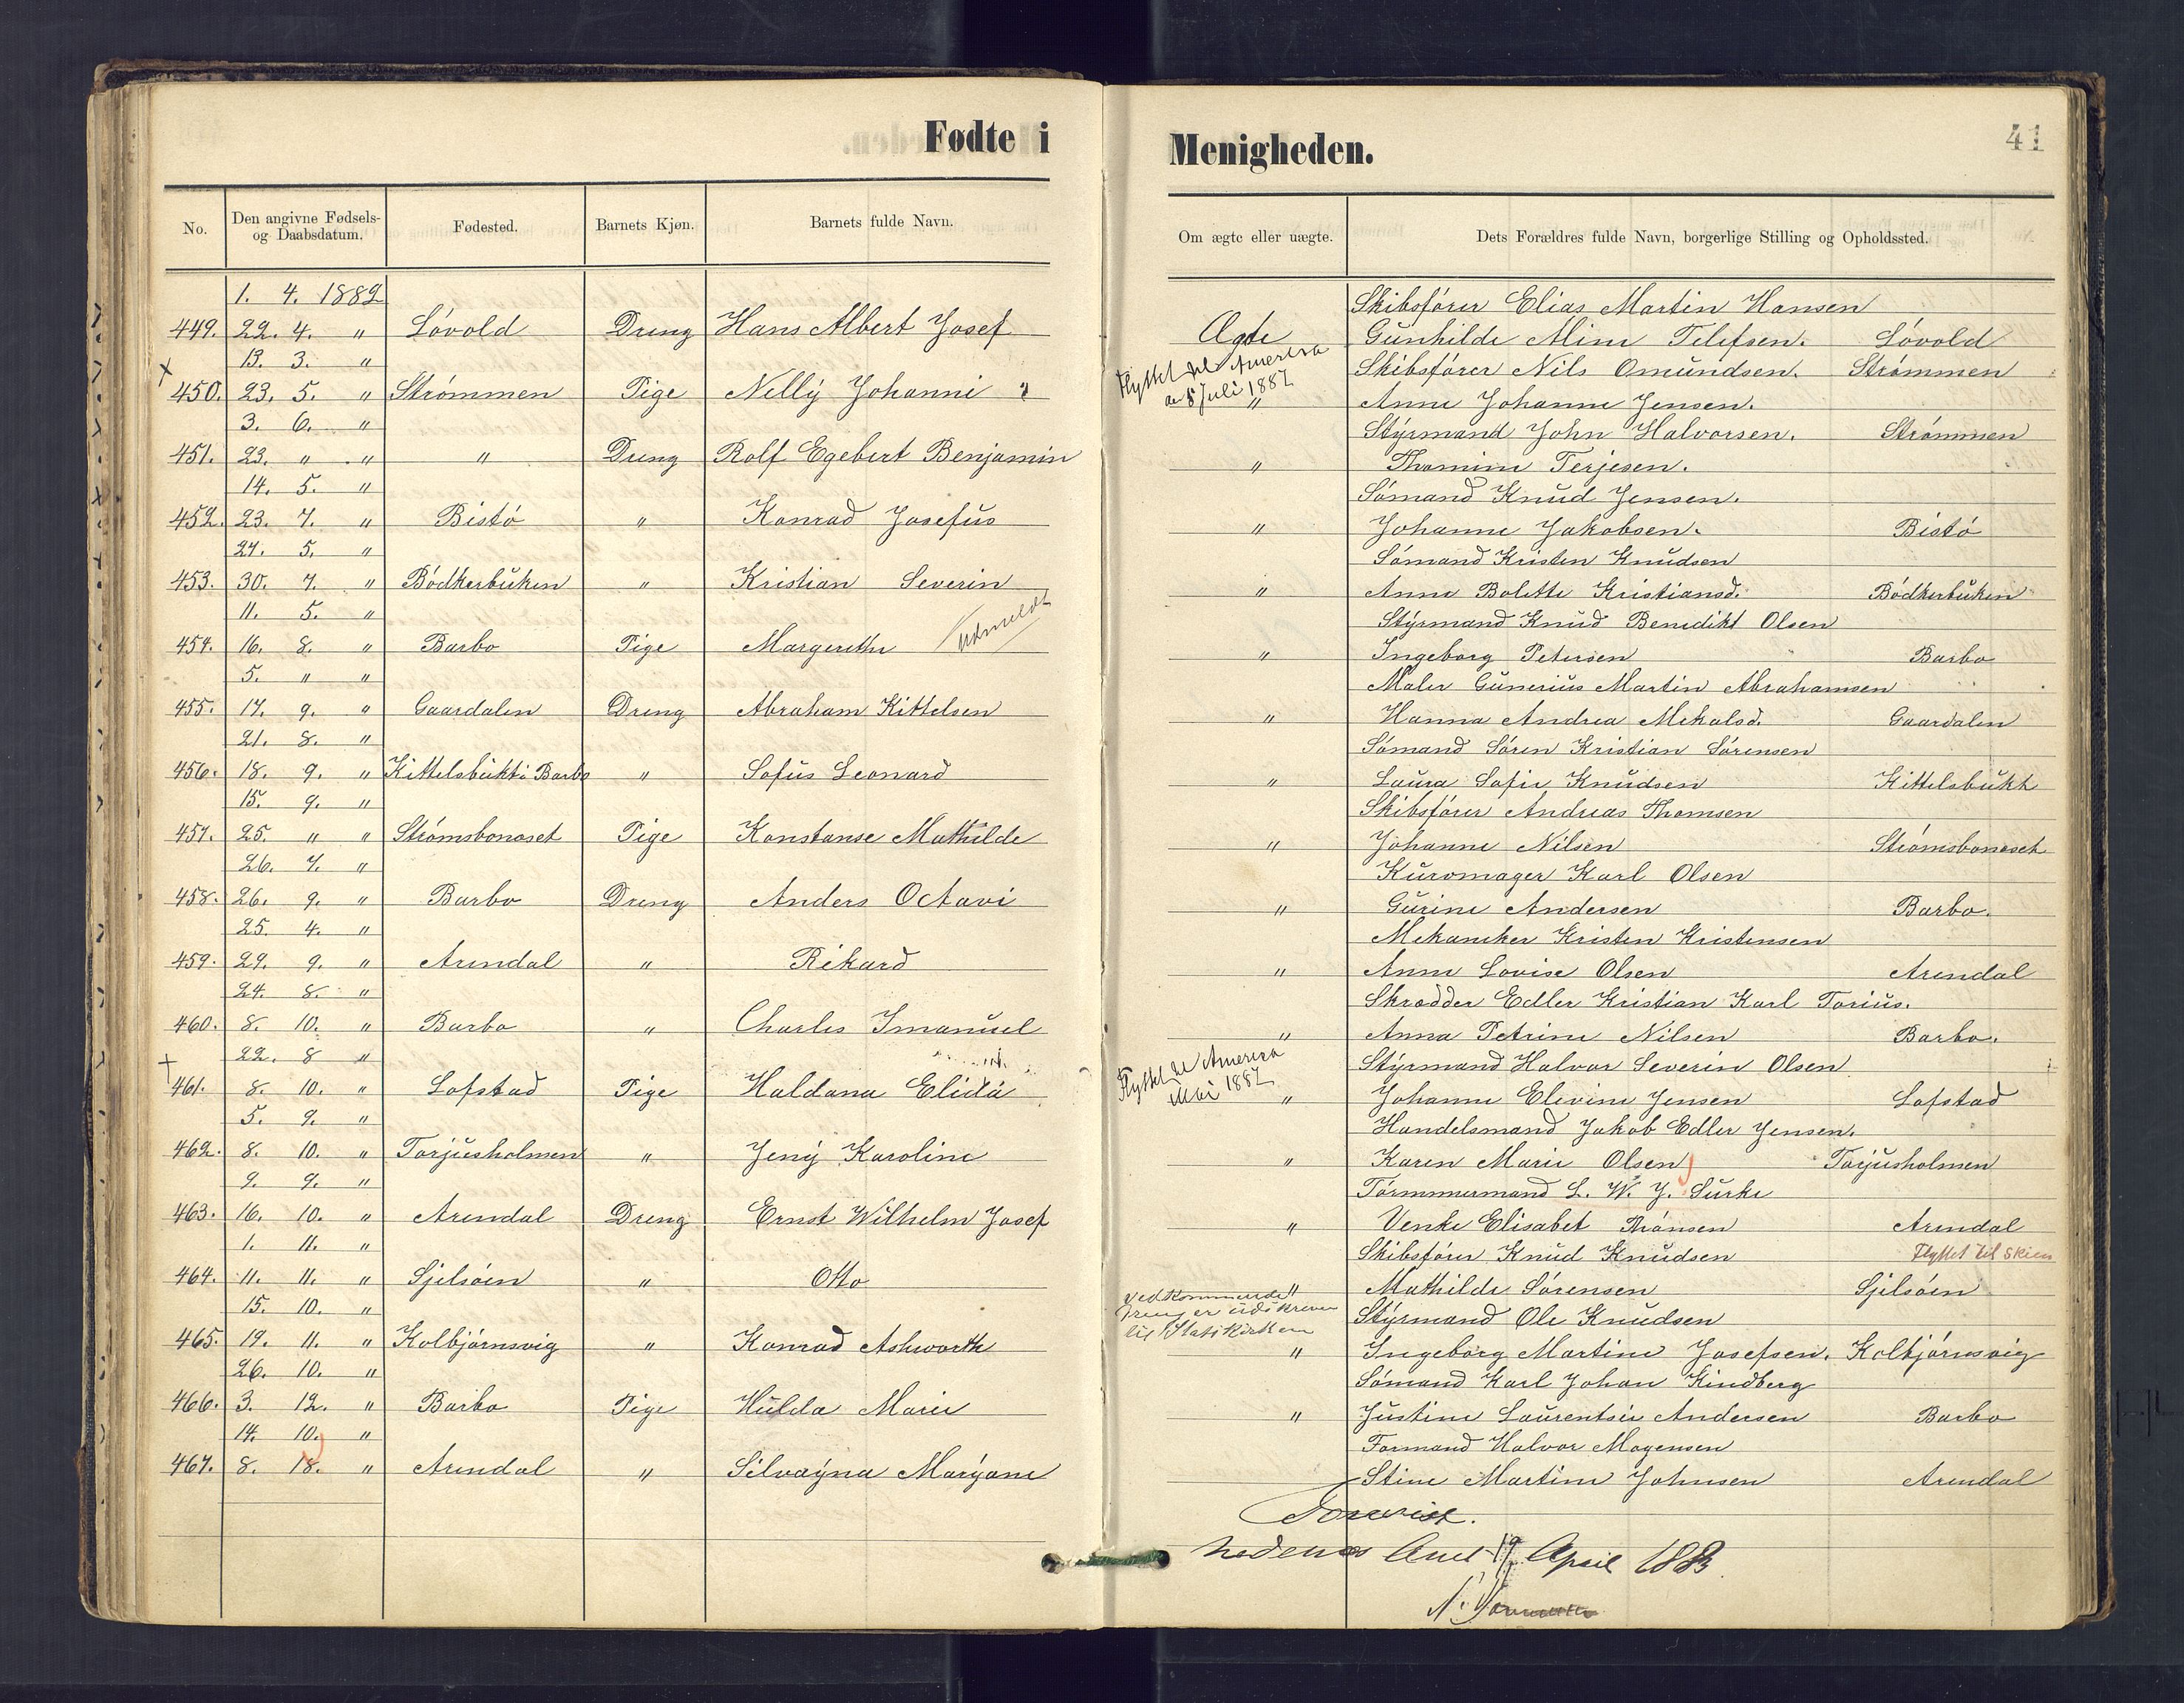 Fødte i Menigheden.
41
No. Den angivne Fødsels- og Daabsdatum. Fødested. Barnets Kjøn. Barnets fulde Navn. Om ægte eller uægte. Dets Forældres fulde Navn, borgerlige Stilling og Opholdssted.
1. 4. 1882 Skibsfører Elias Martin Hansen
449. 22. 4. " Lóvold Dreng Hans Albert Josef Ægte Gunhilde Aline Telefsen. Lóvold
13. 3. " Skibsfører Nils Omundsen. Strømmen
450. 23. 5. " Strømmen Pige Nelly Johanne " Anne Johanne Jensen.
Flyttet til Amerika
5 Juli 1887
3. 6. " Styrmand John Halvorsen. Strømmen
451. 23. " " " Dreng Rolf Egebert Benjamin " Thomine Terjesen.
14. 5. " Sómand Knud Jensen.
452. 23. 7. " Bistó " Konrad Josefus " Johanne Jakobsen. Bistó
24. 5. " Sómand Kristen Knudsen
453. 30. 7. " Bódkerbuken " Kristian Severin " Anne Bolette Kristiansd. Bódkerbuken
11. 5. " Styrmand Knud Benedikt Olsen
454. 16. 8. " Barbo Pige Margerethe Udmeldt " Ingeborg Petersen Barbo
5. " " Maler Gunerius Martin Abrahamsen
455. 17. 9. " Gaardalen Dreng Abraham Kittelsen " Hanna Andrea Mekalsd. Gaardalen
21. 8. " Sómand Sóren Kristian Sórensen
456. 18. 9. " Kittelsbukt i Barbo " Sofus Leonard " Laura Sofie Knudsen Kittelsbukt
15. 9. " Skibsfører Andreas Thomsen
457. 25. " " Strømsbonæset Pige Konstanse Mathilde " Johanne Nilsen Strømsbonæset
26. 7. " Kurvmager Karl Olsen
458. 26. 9. " Barbo Dreng Anders Octavi " Gurine Andersen Barbo.
25. 4. " Mekaniker Kristen Kristensen
459. 29. 9. " Arendal " Rikard " Anne Lovise Olsen Arendal
24. 8. " Skrædder Edler Kristian Karl Torius.
460. 8. 10. " Barbo " Charles Imanuel " Anna Petrine Nilsen Barbo.
22. 8 " Styrmand Halvor Severin Olsen
461. 8. 10. " Lofstad Pige Haldana Elida " Johanne Elevine Jensen Lofstad
Flyttet til Amerika
1887
5. 9. " Handelsmand Jakob Edler Jensen.
462. 8. 10. " Torjusholmen " Jeny Karoline " Karen Marie Olsen Torjusholmen
9. 9. " Tómmermand L. W. J. Surke
463. 16. 10. " Arendal Dreng Ernst Wilhelm Josef " Venke Elisabet Thónsen Arendal
1. 11. " Skibsfører Knud Knudsen Flyttet til Skien
464. 11. 11. " Gjelsóen " Otto " Mathilde Sórensen Gjelsóen
15. 10. " Styrmand Ole Knudsen
Vedkommende
Dreng er udskreven
til Statskirken
465. 19. 11. " Kolbjørnsvig " Konrad Ashworth " Ingeborg Martine Josefsen. Kolbjørnsvig
26. 10. " Sómand Karl Johan Kindberg
466. 3. 12. " Barbo Pige Hulda Marie " Justine Laurentsie Andersen Barbo
14. 10. " Formand Halvor Mogensen
467. 8. 12. " Arendal " Silvayna Maryane Stine Martine Johnsen Arendal
Forevist.
Nedenes Amt 19 April 1883